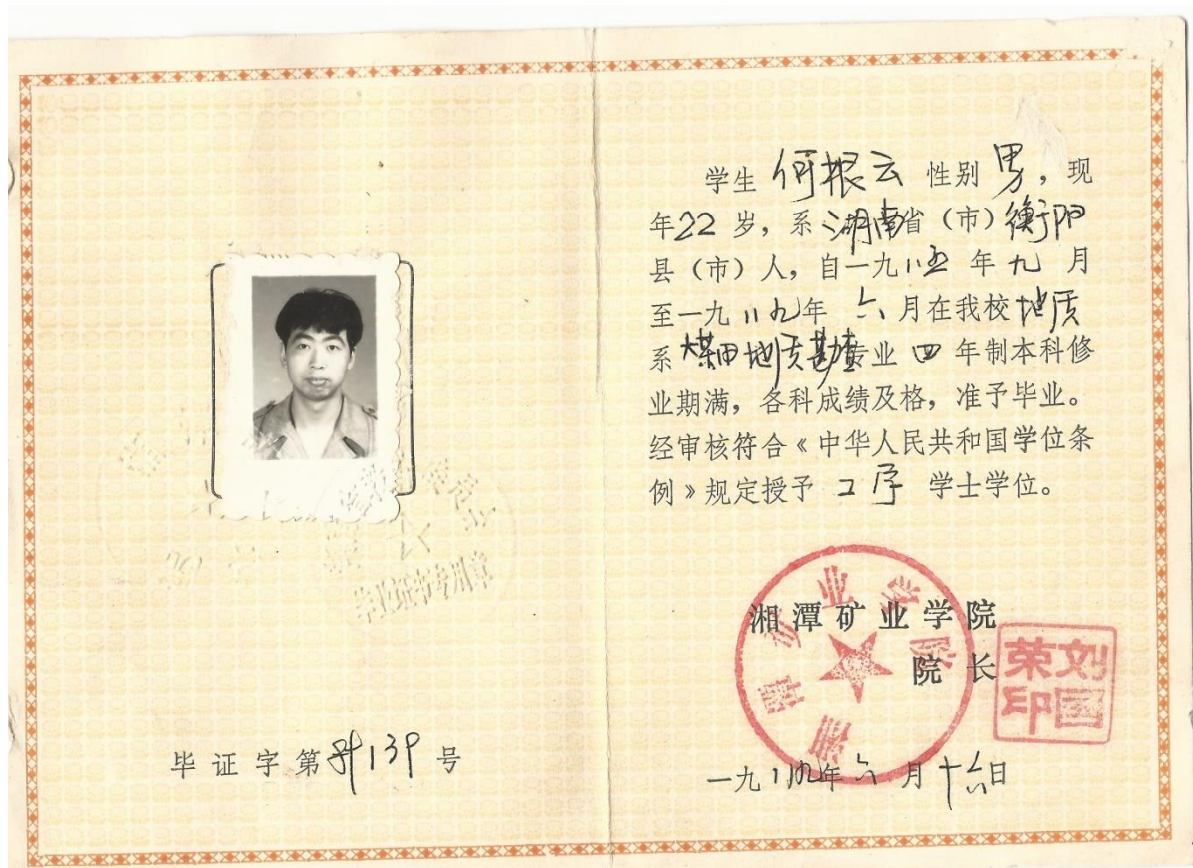 毕证字第89139号
学生 何根云 性别 男，现
年22岁，系湖南省（市）衡阳
县（市）人，自一九八五年九月
至一九八九年六月在我校地质
系煤田地质勘查专业四年制本科修
业期满，各科成绩及格，准予毕业。
经审核符合《中华人民共和国学位条
例》规定授予 工学 学士学位。
湘潭矿业学院
院长
刘国荣印
湘潭矿业学院
一九八九年六月十六日